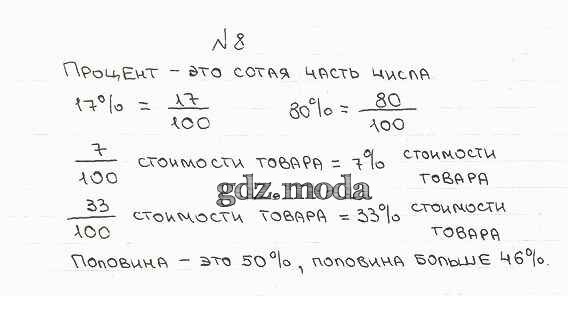 № 8
Процент – это сотая часть числа
17% = 17/100 80% = 80/100
7/100 стоимости товара = 7% стоимости товара
gdz.moda
33/100 стоимости товара = 33% стоимости товара
Половина – это 50%, половина больше 46%.